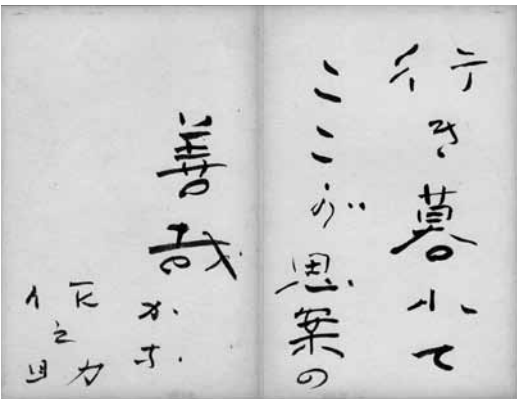 行き暮れて
ここが思案の
善哉かな
作之助